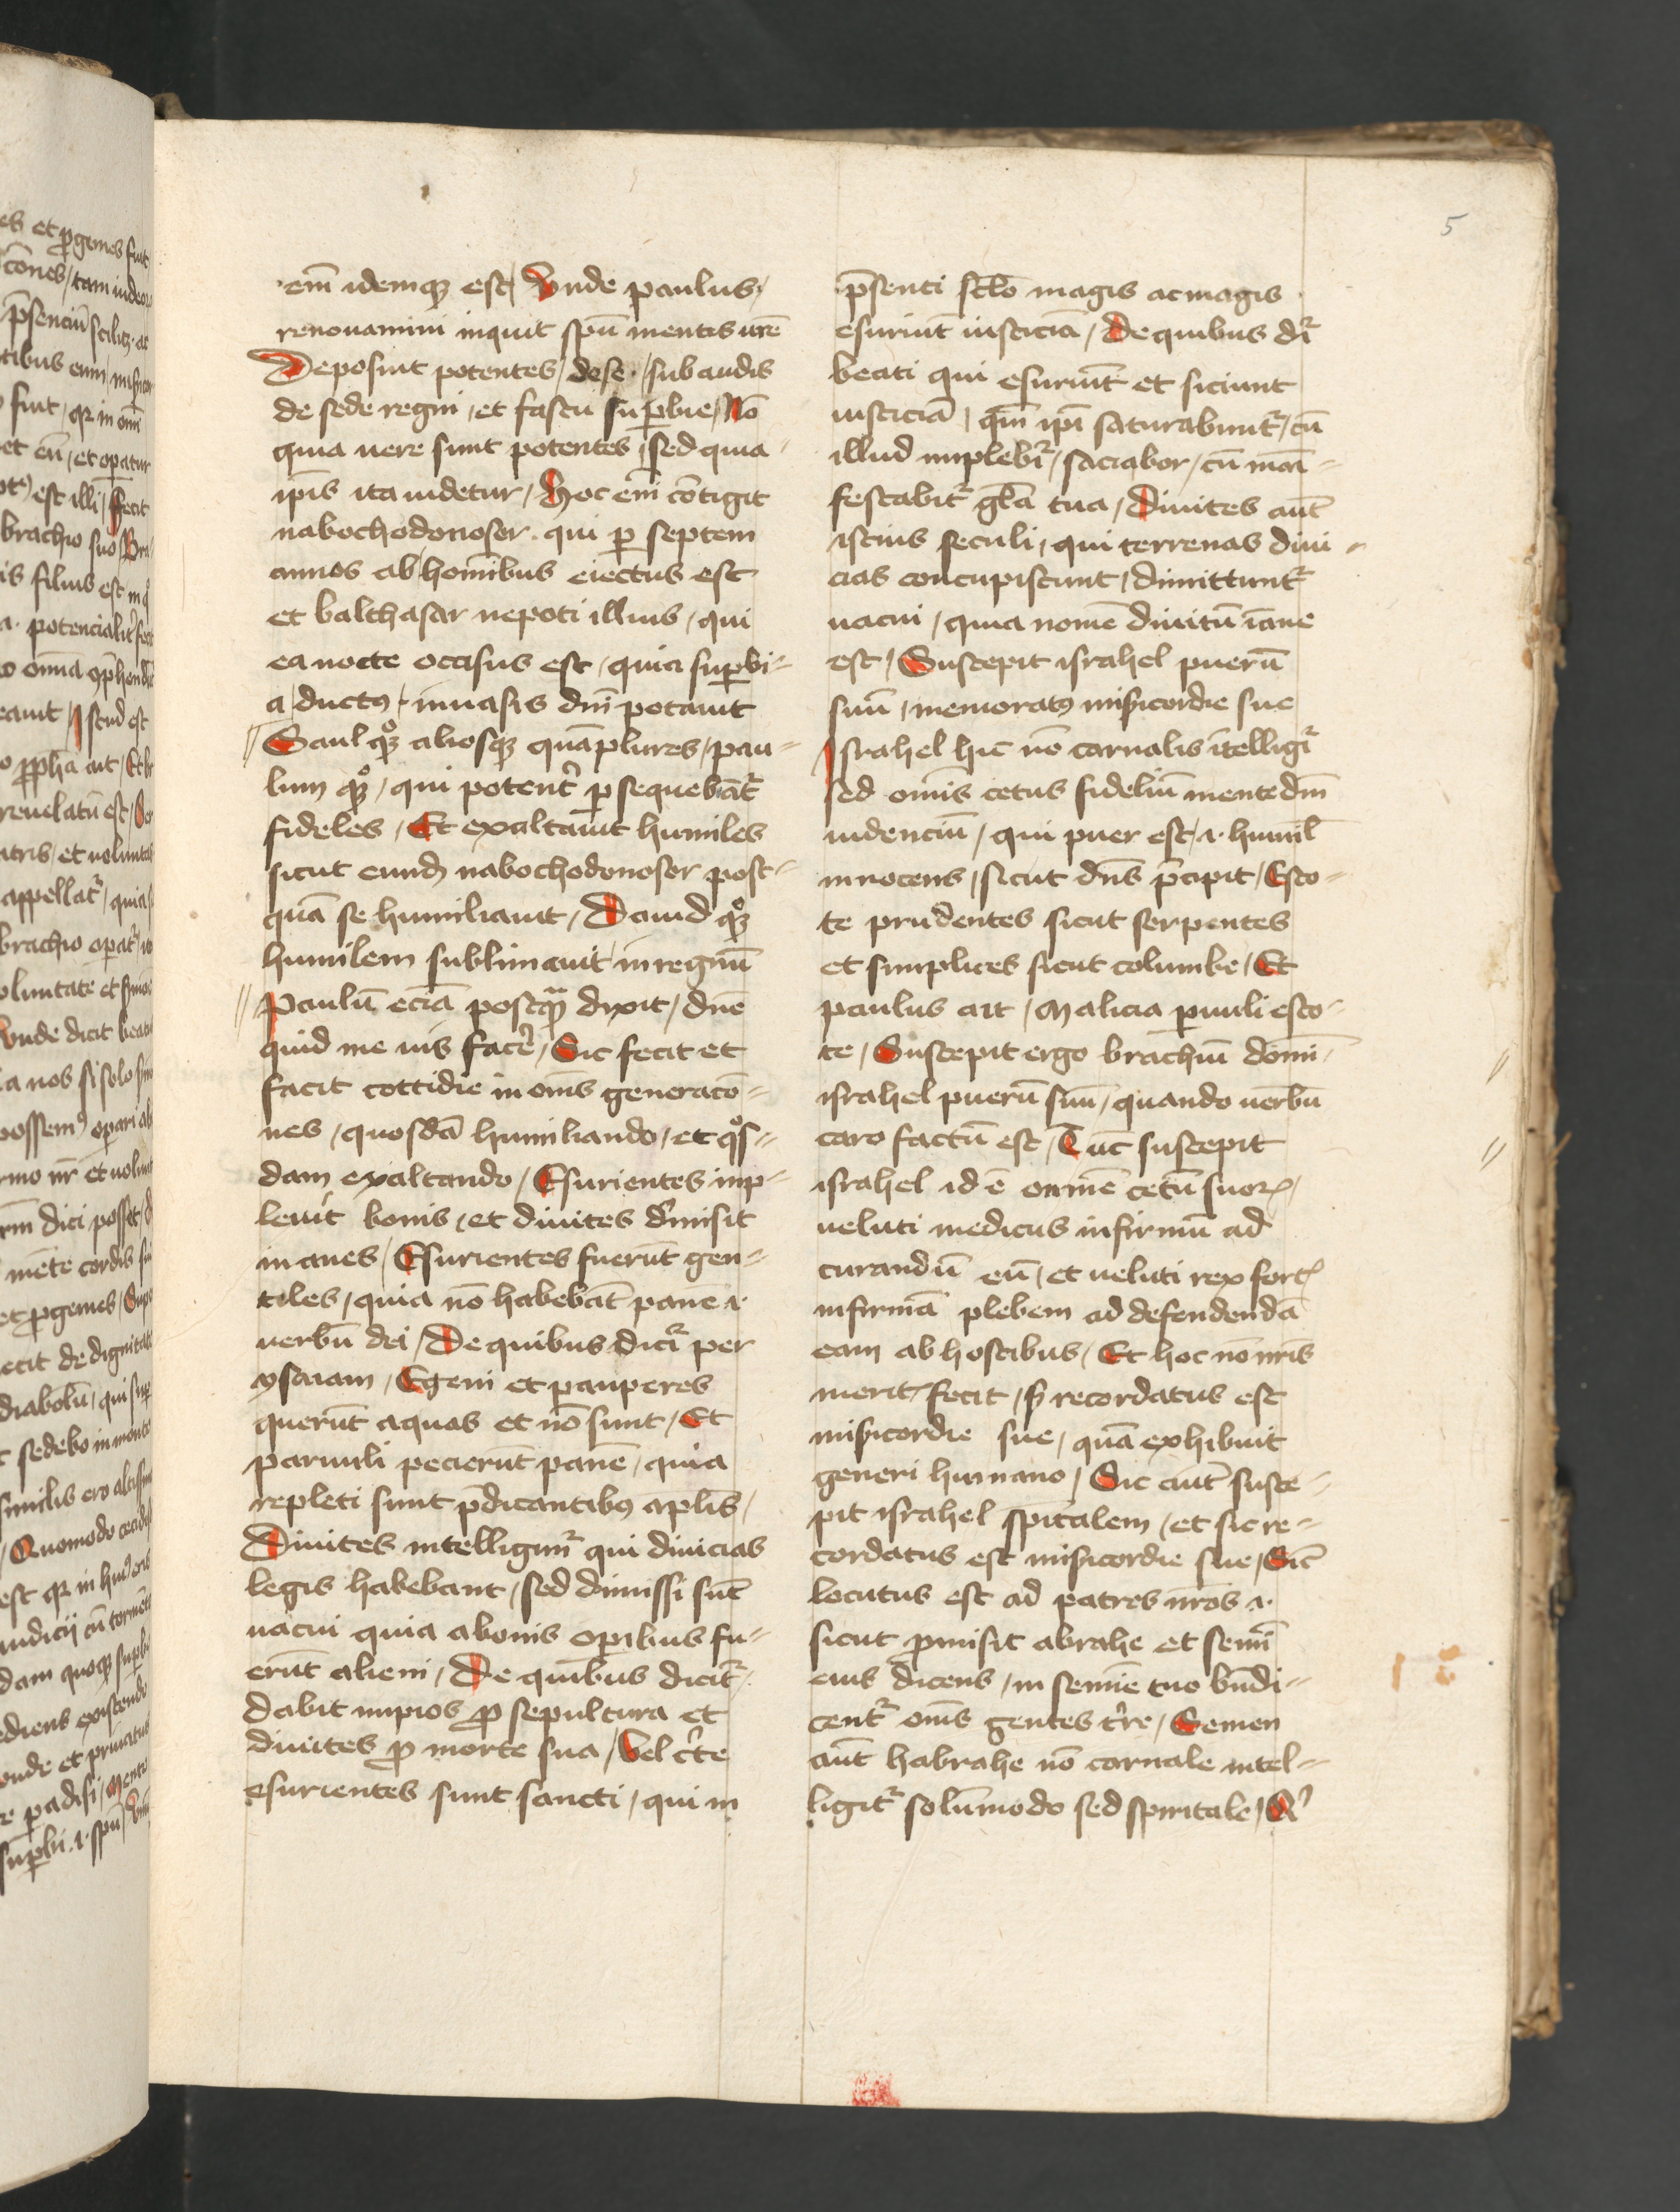 5
em̄ idemqꝫ est / Vnde paulus /
renouamini inquit spū mentis ur̄e
Deposuit potentes / de se · / subaudis
de sede regni / et fastu suꝑbie / Nō
quia uere sunt potentes / sed quia
ip̄is ita uidetur / Hoc em̄ cōtigit
nabochodonosor · qui ꝑ septem
annos ab hom̄ibus eiectus est
et balthasar nepoti illius / qui
ea nocte occisus est / quia suꝑbi⸗
a ductꝰ / in uasis dn̄i potauit
Saul qͦꝫ aliosqꝫ quā plures / pau⸗
lum qͦꝫ / qui potent̾ ꝑsequebāt̾
fideles / Et exaltauit humiles
sicut eund̄ nabochodonosor post⸗
quā se humiliauit / Dauid qͦꝫ
humilem sublimauit in regnū
Paulū eciā postqᷓ dixit / dn̄e
quid me uis face̾ / Sic fecit et
facit cottidie in om̄s generacō⸗
nes / quosdā humiliando / et qͦs⸗
dam exaltando / Esurientes inp⸗
leuit bonis / et diuites dimisit
inanes / Esurientes fuerūt gen⸗
tiles / quia nō habebāt panē ·i·
uerbū dei / De quibus dicit̾ per
ysaiam / Egeni et pauperes
querūt aquas et nō sunt / Et
paruuli pecierūt panē / quia
repleti sunt p̄dicantibꝰ aplīs /
Diuites intelligunt̾ qui diuicias
legis habebant / sed dimissi sūt
uacui quia a bonis opībus fu⸗
erūt alieni / De quibus dicit̾ /
Dabit impios ꝓ sepultura et
diuites ꝓ morte sua / Vel c̾te
esurientes sunt sancti / qui in
p̄senti sc̄lo magis ac magis
esuriūt iusticiā / De quibus dr̄
beati qui esuriūt et siciunt
iusticiā / qm̄ ip̄i saturabunt̾ / cū
illud implebit̾ / saciabor / cū mani⸗
festabit̾ gl̄a tua / Diuites aūt
istius seculi / qui terrenas diui⸗
cias concupiscunt / dimittunt̾
uacui / quia nomē diuitū ināne
est / Suscepit israhel puerū
suū / memoratꝰ mīsicordie sue
Israhel hic nō carnalis ītelligit̾
sed om̄is cetus fideliū mente dm̄
uidenciū / qui puer est / ·i· humil̄
innocens / sicut dn̄s p̄cipit / Esto⸗
te prudentes sicut serpentes
et simplices sicut columbe / Et
paulus ait / Malicia ꝑuuli esto⸗
te / Suscepit ergo brachiū domi /
israhel puerū suū / quando uerbū
caro factū est / Tūc suscepit
israhel id ē onmē cetū suoꝝ /
ueluti medicus infirmū ad
curandū eū / et ueluti rex fort̾
infirmā plebem ad defendendā
eam ab hostibus / Et hoc nō nr̄is
merit̾ fecit / sꝫ recordatus est
mīsicordie sue / quā exhibuit
generi humano / Sic aūt susce⸗
pit israhel spītalem / et sic re⸗
cordatus est mīsicordie sue / Sic̄
locutus est ad patres nr̄os ·i·
sicut ꝓmisit abrahe et semī
eius dicens / in semīe tuo bn̄di⸗
cent̾ om̄s gentes t̾re / Semen
aūt habrahe nō carnale intel⸗
ligit̾ solūmodo sed spiritale /